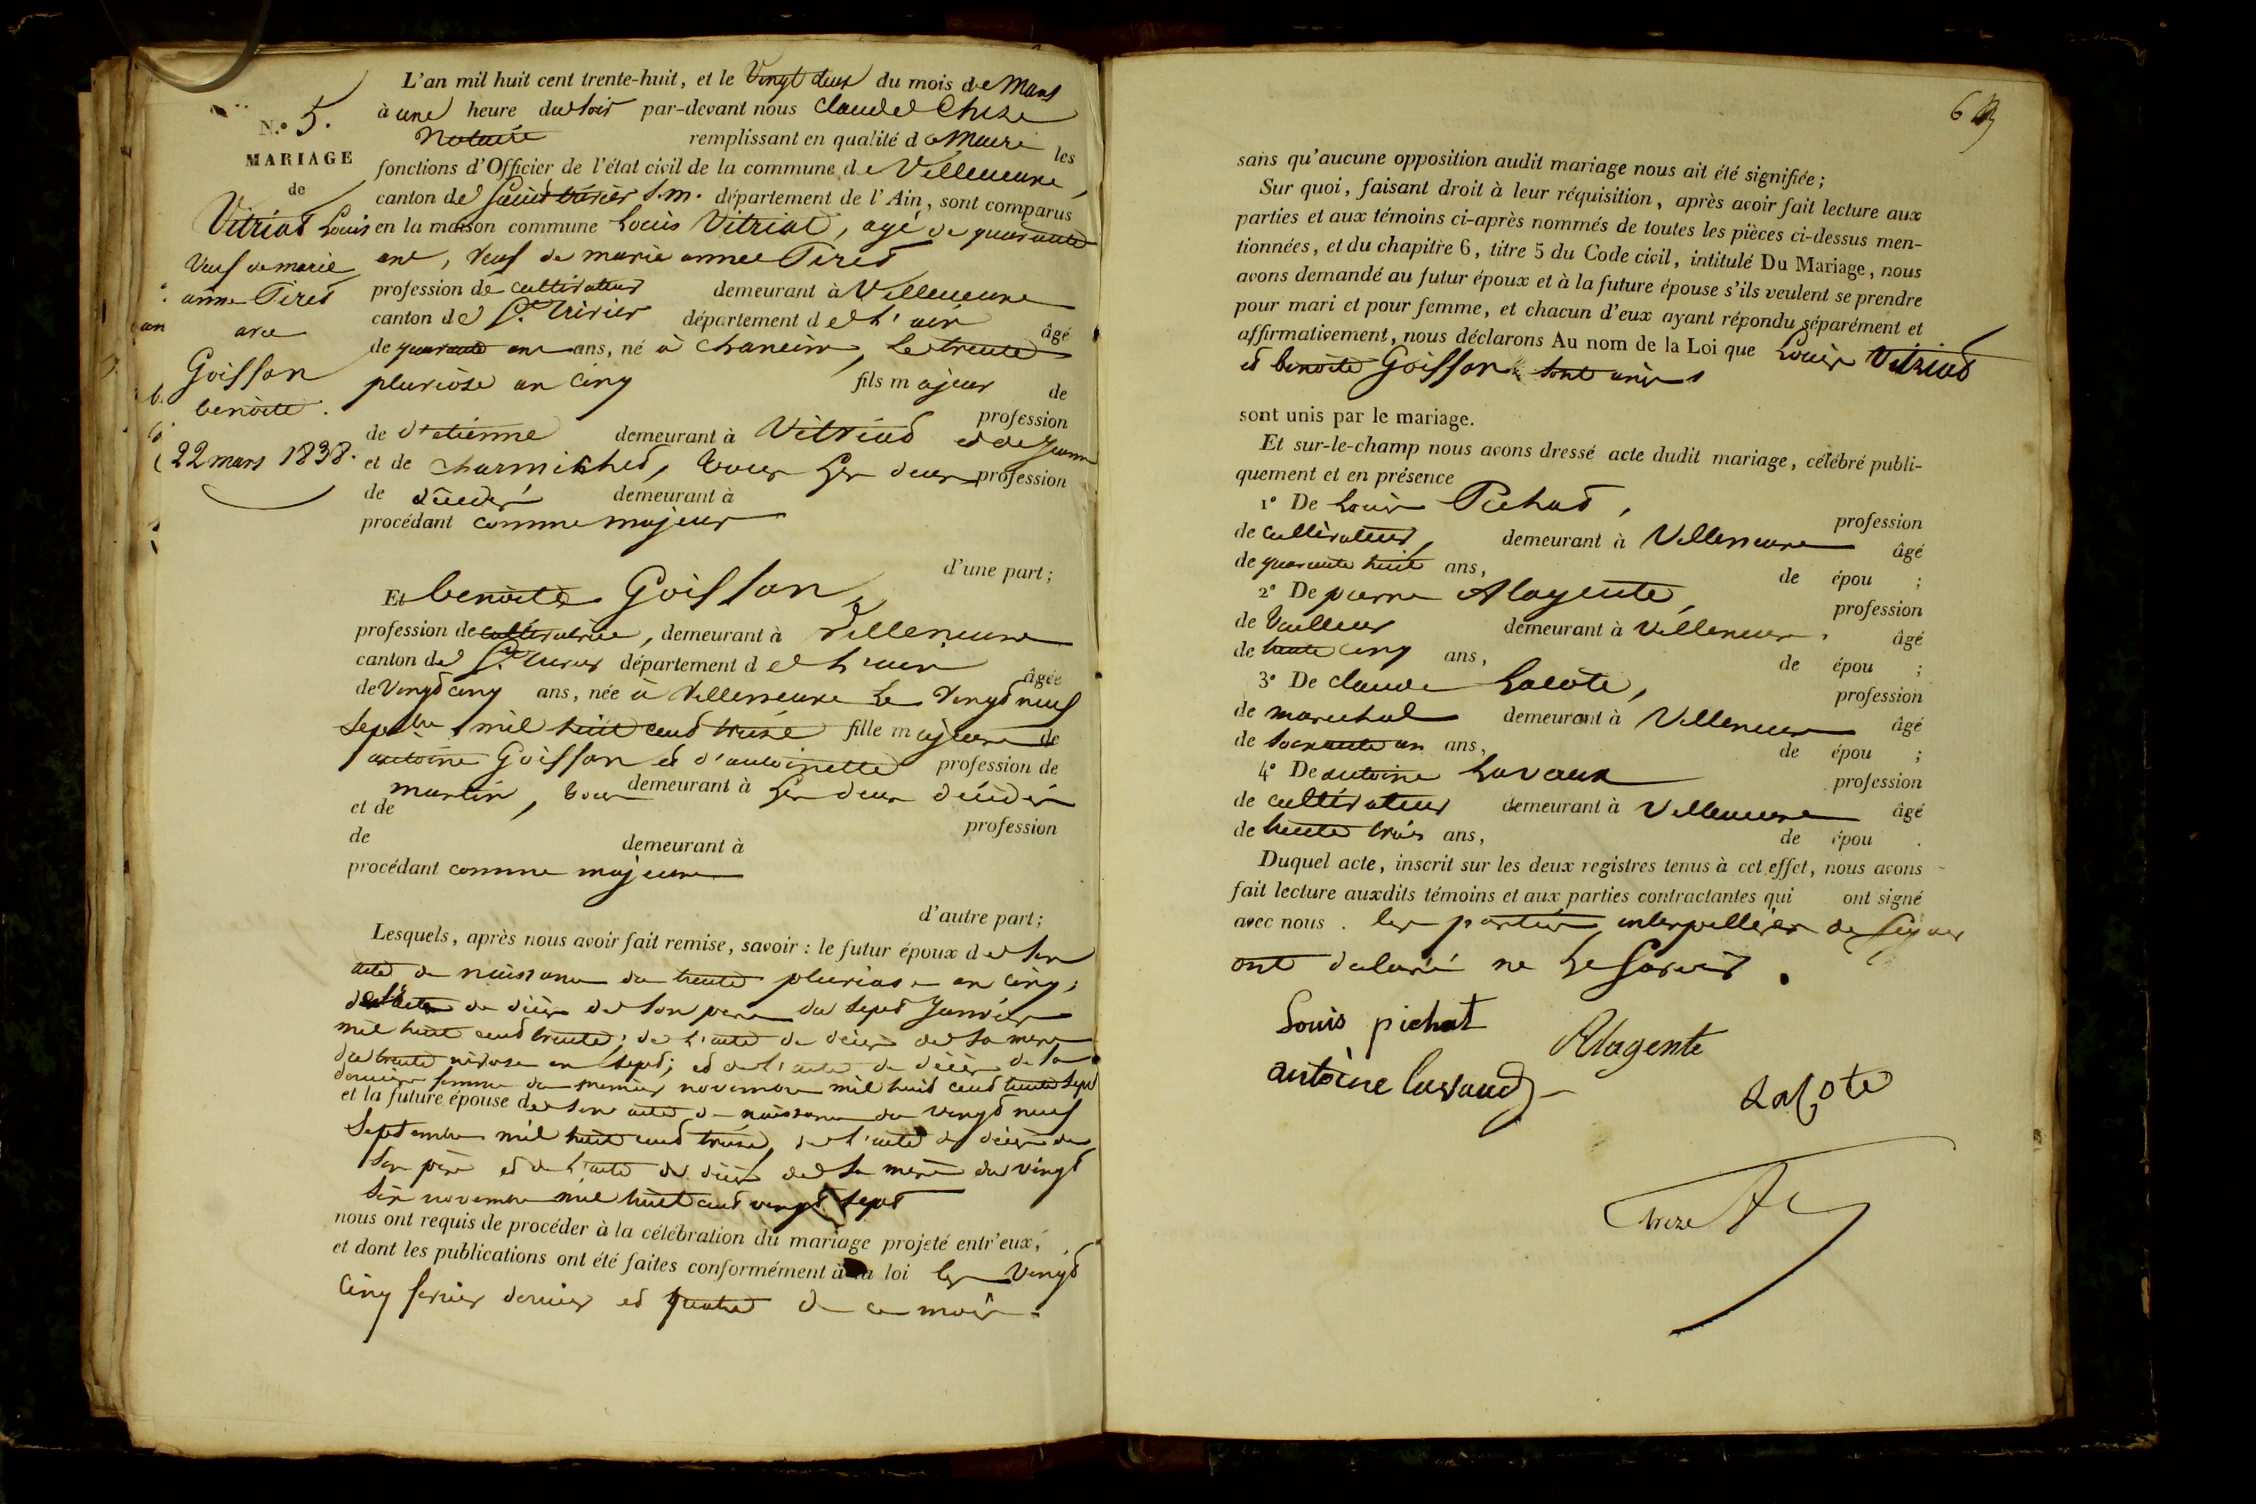 N.º 5.
MARIAGE
de
Vitriat Louis
veuf de marie
anne Piret
avec
Goiffon
benoite.
22 mars 1838.
L'an mil huit cent trente-huit, et le Vingt deux du mois de Mars
à une heure du soir par-devant nous Claude Chize
Notaire remplissant en qualité de Maire les
fonctions d'Officier de l'état civil de la commune de Villeneuve,
canton de Saint trivier S. m. département de l'Ain, sont comparus
en la maison commune Louis Vitriat, agé de quarante
ans, veuf de marie anne Piret
profession de cultivateur demeurant à Villeneuve
canton de St. trivier département de l'ain âgé
de quarante ans, né à chaneins, le trente
pluviose an cinq fils majeur de
profession
de d'etienne demeurant à Vitriat et de Jeanne
et de charmillet, tous les deux profession
de décédés demeurant à
procédant comme majeur
d'une part;
Et benoite Goiffon,
profession de cultivatrice, demeurant à Villeneuve
canton de St. trivier département de l'ain âgée
de Vingt cinq ans, née à Villeneuve le Vingt neuf
Septbre mil huit cent treize fille majeure de
antoine Goiffon et d'antoinette profession de
martin, tous demeurant à les deux décédés
et de profession
de demeurant à
procédant comme majeure
d'autre part;
Lesquels, après nous avoir fait remise, savoir : le futur époux de son
acte de naissance du trente pluviose an cinq;
de l'acte de décès de son père du sept Janvier
mil huit cent trente; de l'acte de décès de sa mère
du trente nivose an sept; et de l'acte de décès de sa
dernière femme du premier novembre mil huit cent trente sept
et la future épouse de son acte de naissance du vingt neuf
Septembre mil huit cent treize, de l'acte de décès de
son père et de l'acte de décès de sa mère du vingt
six novembre mil huit cent vingt sept
nous ont requis de procéder à la célébration du mariage projeté entr'eux,
et dont les publications ont été faites conformément à la loi les Vingt
cinq fevrier dernier et quatre de ce mois.
6
sans qu'aucune opposition audit mariage nous ait été signifiée;
Sur quoi, faisant droit à leur réquisition, après avoir fait lecture aux
parties et aux témoins ci-après nommés de toutes les pièces ci-dessus men-
tionnées, et du chapitre 6, titre 5 du Code civil, intitulé Du Mariage, nous
avons demandé au futur époux et à la future épouse s'ils veulent se prendre
pour mari et pour femme, et chacun d'eux ayant répondu séparément et
affirmativement, nous déclarons Au nom de la Loi que Louis Vitriat
et benoite Goiffon sont unis
sont unis par le mariage.
Et sur-le-champ nous avons dressé acte dudit mariage, célébré publi-
quement et en présence
1º De Louis Pichat, profession
de cultivateur, demeurant à Villeneuve âgé
de quarante huit ans, de épou ;
2º De pierre Alagente, profession
de tailleur demeurant à Villeneuve, âgé
de trente cinq ans, de épou ;
3º De claude Lacôte, profession
de marechal demeurant à Villeneuve âgé
de soixante un ans, de épou ;
4º De antoine Lavaux profession
de cultivateur demeurant à Villeneuve âgé
de trente trois ans, de épou .
Duquel acte, inscrit sur les deux registres tenus à cet effet, nous avons
fait lecture auxdits témoins et aux parties contractantes qui ont signé
avec nous. les parties interpellées de signer
ont declaré ne le savoir.
Louis pichat
Alagente
antoine lavaud
Lacote
Chize